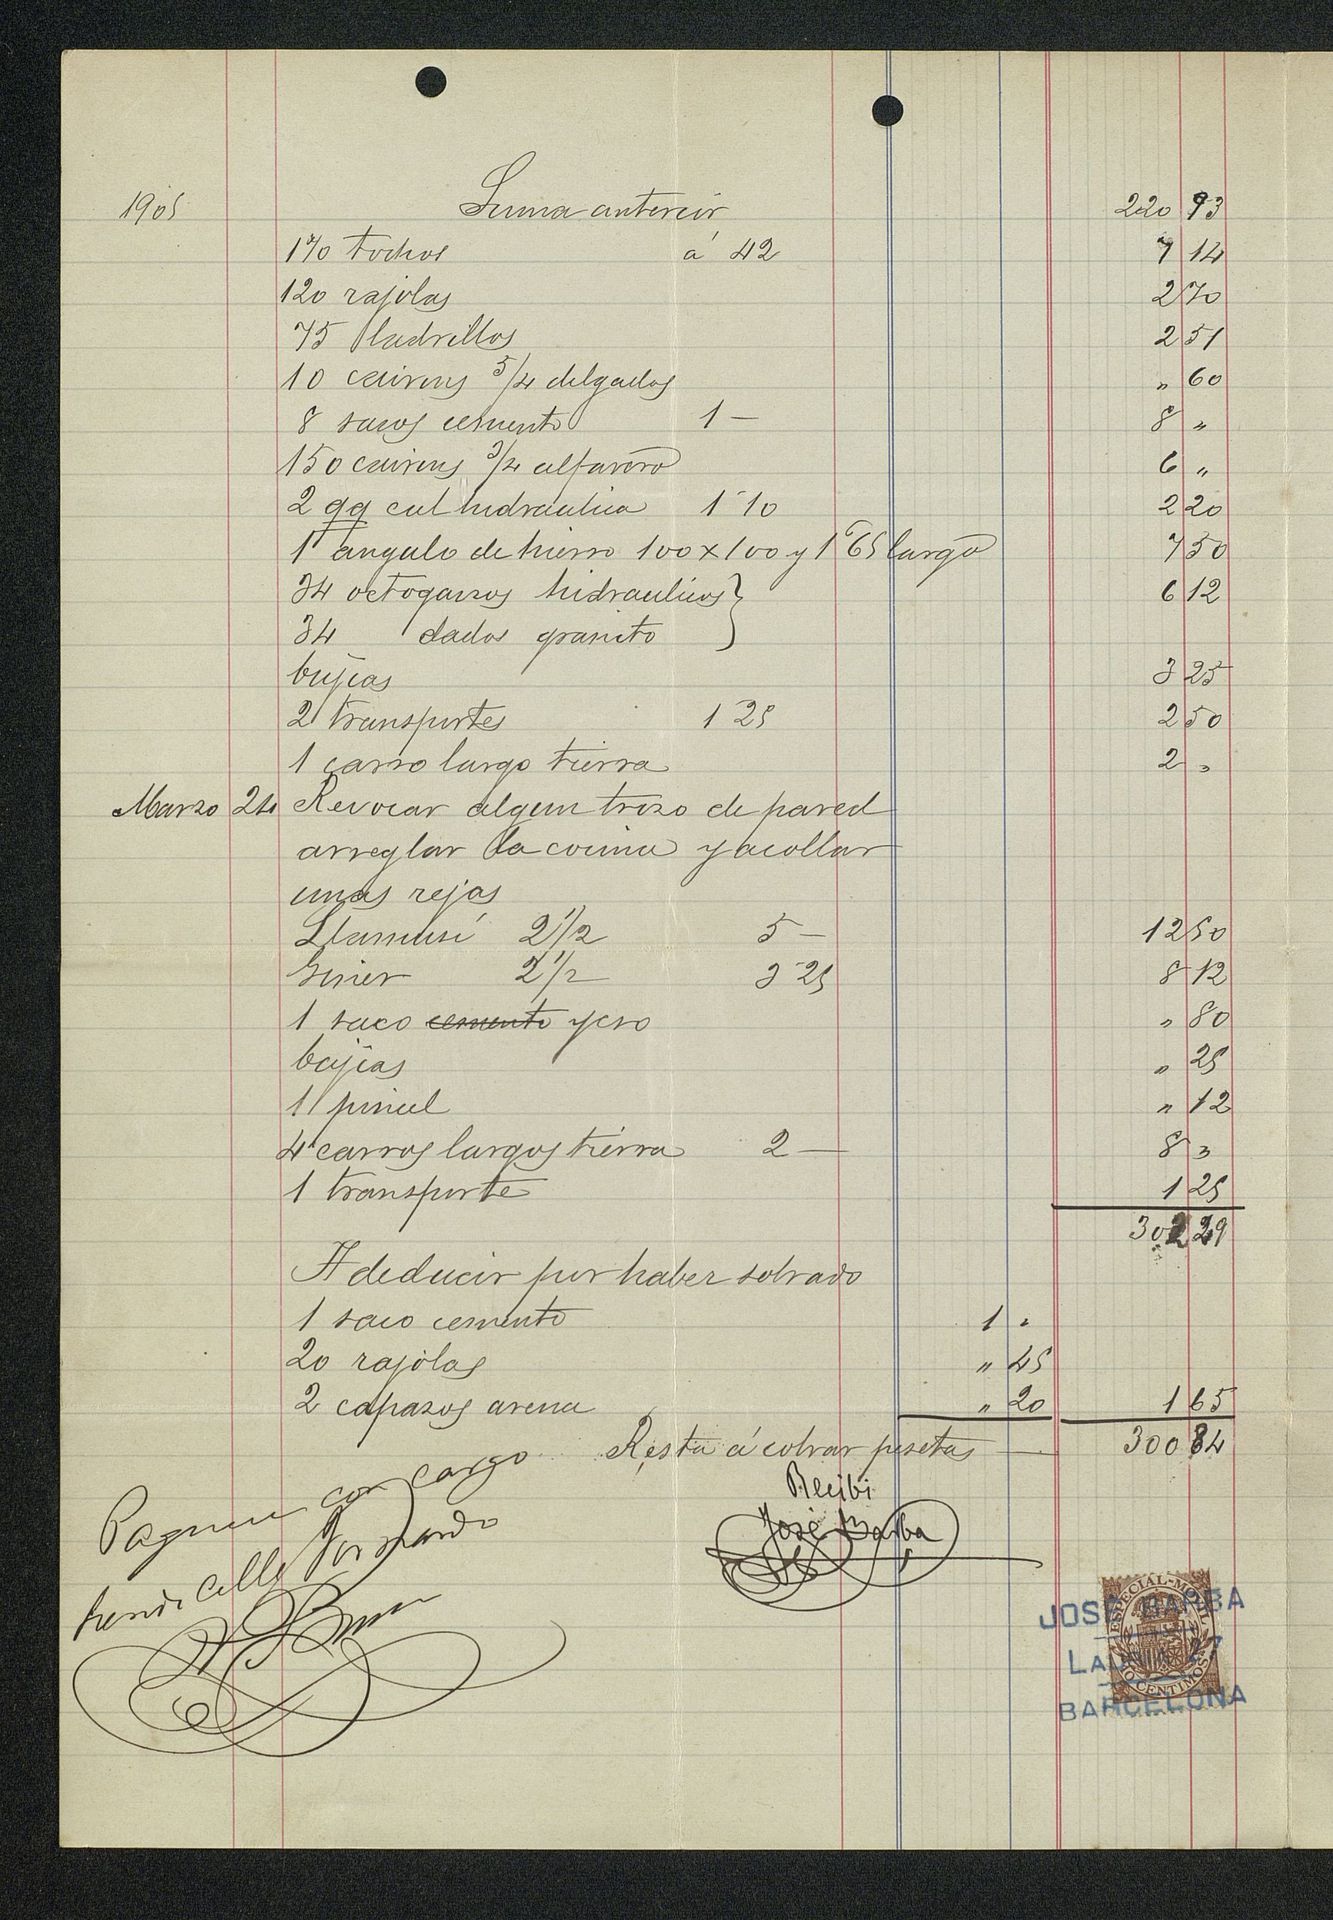 1905 Suma anterior 220 93
170 tochos á 42 7 14
120 rajolas 2 70
75 ladrillos 2 51
10 cairons 5/4 delgados " 60
8 sacos cemento 1 — 8 "
150 cairons 3/4 alfarero 6 "
2 qq cal hidraulica 1"10 2 20
1 angulo de hierro 100 x 100 y 1"65 largo 7 50
34 octogonos hidraulicos } 6 12
34 dados granito
bujias 3 25
2 transportes 1"25 2 50
1 carro largo tierra 2 "
Marzo 24 Revocar algun trozo de pared
arreglar la cocina y acollar
unas rejas
Llamusi 2 1/2 5 — 12 50
Giner 2 1/2 3"25 8 12
1 saco cemento yeso " 80
bujias " 25
1 pincel " 12
4 carros largos tierra 2 — 8 "
1 transporte 1 25
302 29
A deducir por haber sobrado
1 saco cemento 1 "
20 rajolas " 45
2 capazos arena " 20 1 65
Resta á cobrar pesetas — 300 84
Recibi
José Barba
con cargo
calle
ESPECIAL-MOVIL
10 CENTIMOS
JOSÉ BARBA
LAURIA 27
BARCELONA